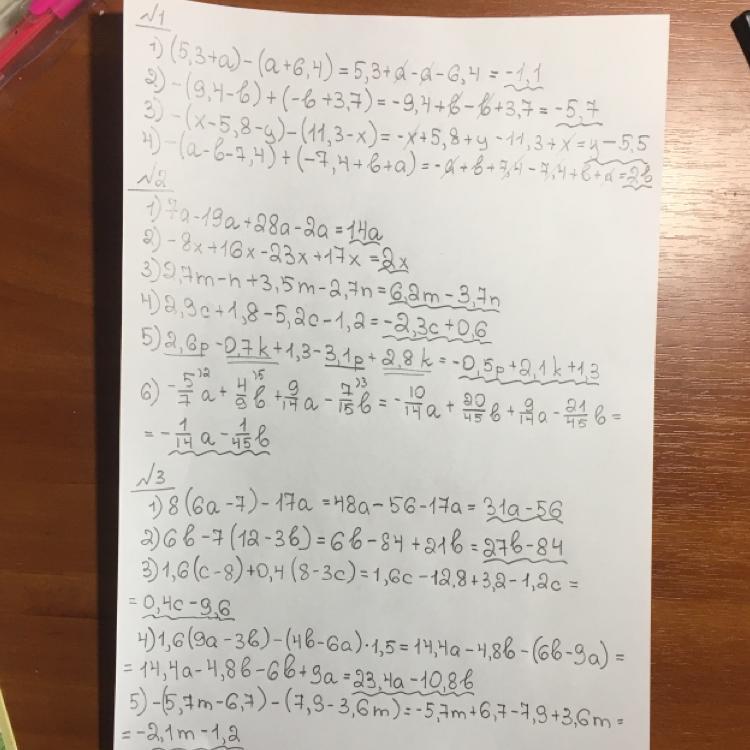 №1
1) (5,3+a)-(a+6,4)=5,3+a-a-6,4=-1,1
2) -(9,4-в)+(-в+3,7)=-9,4+в-в+3,7=-5,7
3) -(x-5,8-y)-(11,3-x)=-x+5,8+y-11,3+x=y-5,5
4) -(a-в-7,4)+(-7,4+в+a)=-a+в+7,4-7,4+в+a=2в
№2
1) 7a-19a+28a-2a=14a
2) -8x+16x-23x+17x=2x
3) 2,7m-n+3,5m-2,7n=6,2m-3,7n
4) 2,9c+1,8-5,2c-1,2=-2,3c+0,6
5) 2,6p-0,7k+1,3-3,1p+2,8k=-0,5p+2,1k+1,3
6) -5/7)2 a+4/9)5 в+9/14 a-7/15)3 в=-10/14 a+20/45 в+9/14 a-21/45 в=
=-1/14 a-1/45 в
№3
1) 8(6a-7)-17a=48a-56-17a=31a-56
2) 6в-7(12-3в)=6в-84+21в=27в-84
3) 1,6(c-8)+0,4(8-3c)=1,6c-12,8+3,2-1,2c=
=0,4c-9,6
4) 1,6(9a-3в)-(4в-6a)·1,5=14,4a-4,8в-(6в-9a)=
=14,4a-4,8в-6в+9a=23,4a-10,8в
5) -(5,7m-6,7)-(7,9-3,6m)=-5,7m+6,7-7,9+3,6m=
=-2,1m-1,2